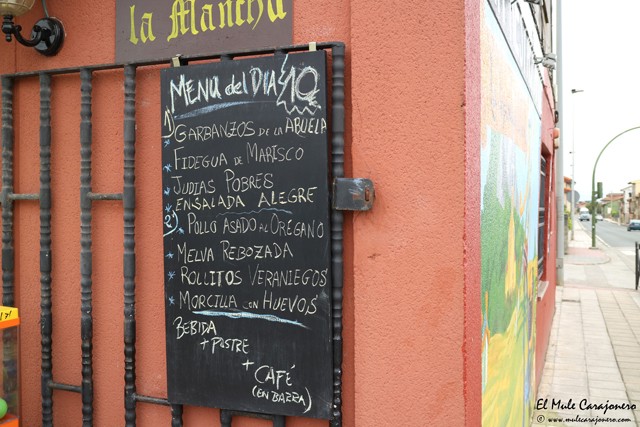 la Mancha
MENU del DIA 10
1) GARBANZOS DE LA ABUELA
* FIDEGUA DE MARISCO
* JUDIAS POBRES
* ENSALADA ALEGRE
2) * POLLO ASADO AL OREGANO
* MELVA REBOZADA
* ROLLITOS VERANIEGOS
* MORCILLA CON HUEVOS
BEBIDA
+ POSTRE
+ CAFÉ
(EN BARRA)
El Mule Carajonero
© www.mulecarajonero.com